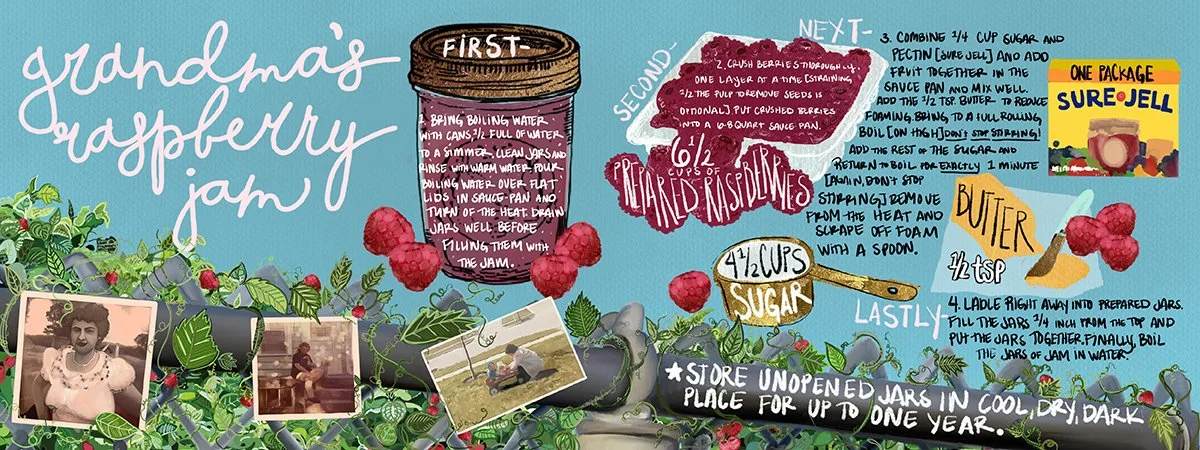 grandma's
raspberry
jam
FIRST-
1. BRING BOILING WATER
WITH CANS 1/2 FULL OF WATER
TO A SIMMER. CLEAN JARS AND
RINSE WITH WARM WATER. POUR
BOILING WATER OVER FLAT
LIDS IN SAUCE-PAN AND
TURN OF THE HEAT. DRAIN
JARS WELL BEFORE
FILLING THEM WITH
THE JAM.
SECOND-
2. CRUSH BERRIES THOROUGHLY.
ONE LAYER AT A TIME [STRAINING
1/2 THE PULP TO REMOVE SEEDS IS
OPTIONAL] PUT CRUSHED BERRIES
INTO A 6-8 QUART SAUCE PAN.
6 1/2
CUPS OF
PREPARED RASPBERRIES
4 1/2 CUPS
SUGAR
NEXT-
3. COMBINE 1/4 CUP SUGAR AND
PECTIN [SURE JELL] AND ADD
FRUIT TOGETHER IN THE
SAUCE PAN AND MIX WELL.
ADD THE 1/2 TSP BUTTER TO REDUCE
FOAMING. BRING TO A FULL ROLLING
BOIL [ON HIGH] DON'T STOP STIRRING!
ADD THE REST OF THE SUGAR AND
RETURN TO BOIL FOR EXACTLY 1 MINUTE
[AGAIN, DON'T STOP
STIRRING] REMOVE
FROM THE HEAT AND
SCRAPE OFF FOAM
WITH A SPOON.
ONE PACKAGE
SURE JELL
BUTTER
1/2 tsp
LASTLY-
4. LADLE RIGHT AWAY INTO PREPARED JARS.
FILL THE JARS 1/4 INCH FROM THE TOP AND
PUT THE JARS TOGETHER. FINALLY, BOIL
THE JARS OF JAM IN WATER
*STORE UNOPENED JARS IN COOL, DRY, DARK
PLACE FOR UP TO ONE YEAR.